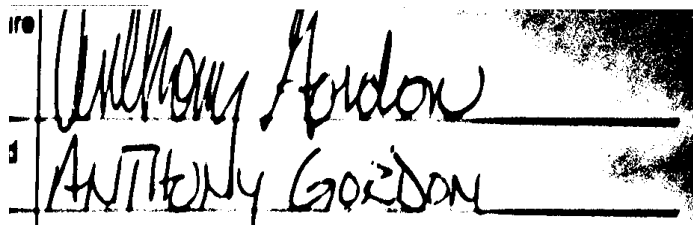 ure Anthony Gordon
d ANTHONY GORDON